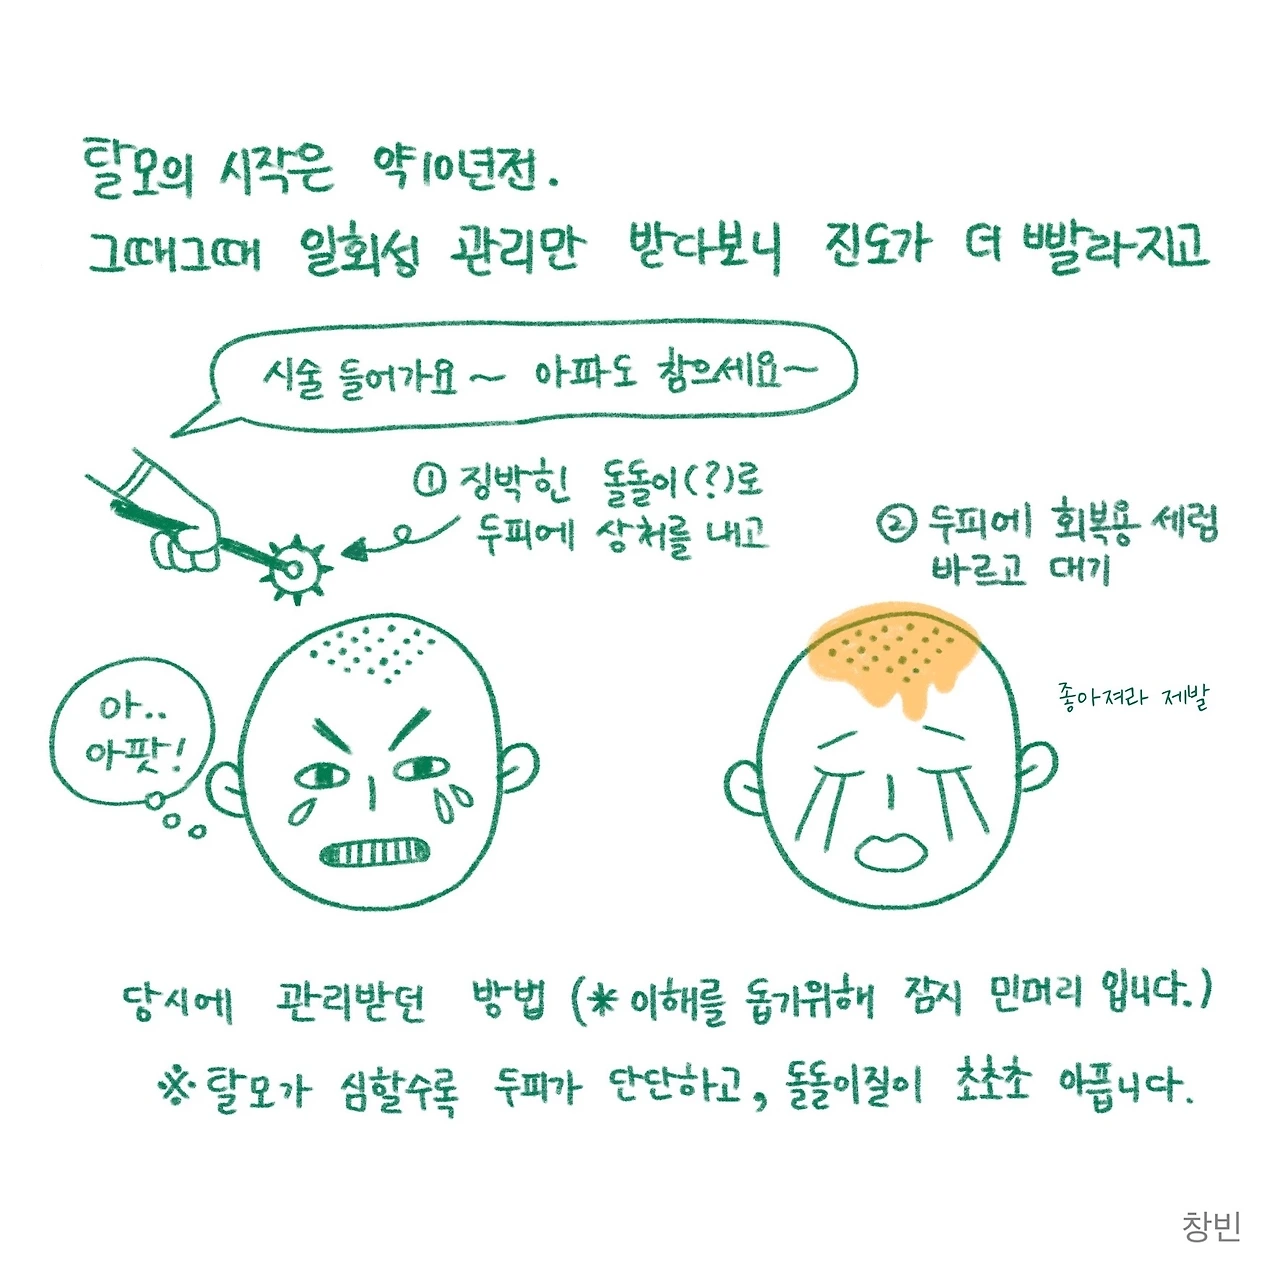 탈모의 시작은 약10년전.
그때그때 일회성 관리만 받다보니 진도가 더 빨라지고
시술 들어가요~ 아파도 참으세요~
① 징박힌 돌돌이(?)로
두피에 상처를 내고
② 두피에 회복용 세럼
바르고 대기
아..
아팟!
좋아져라 제발
당시에 관리받던 방법 (* 이해를 돕기위해 잠시 민머리 입니다.)
※ 탈모가 심할수록 두피가 단단하고, 돌돌이질이 초초초 아픕니다.
창빈